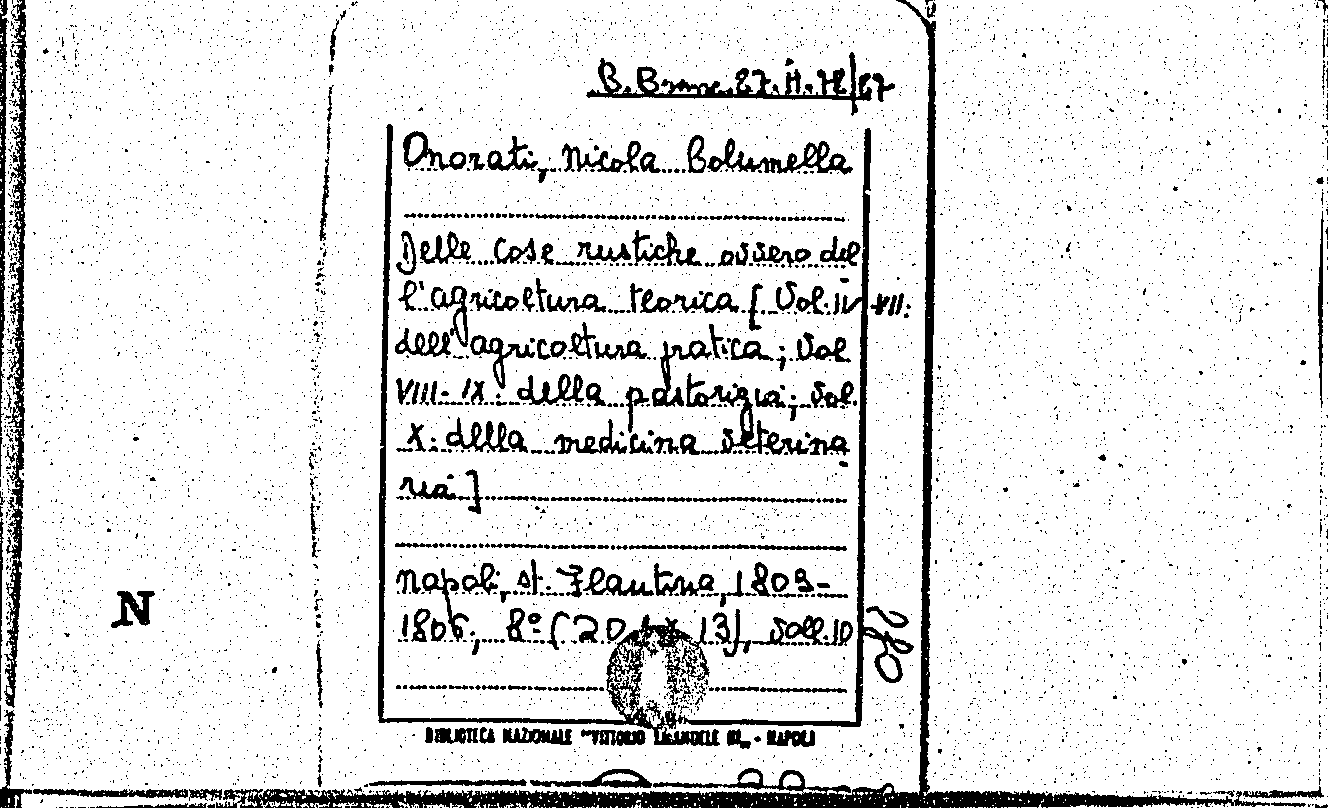 B. Branc. 27. H. 72/87
Onorati, Nicola Columella
Delle cose rustiche ovvero del
l'agricoltura teorica [Vol. IV-VII:
dell'agricoltura pratica; Vol
VIII-IX: della pastorizia; Vol.
X: della medicina veterina
ria]
Napoli, st. Flautina, 1803-
1806, 8º (20 x 13), voll. 10
280
N
BIBLIOTECA NAZIONALE "VITTORIO EMANUELE III" - NAPOLI